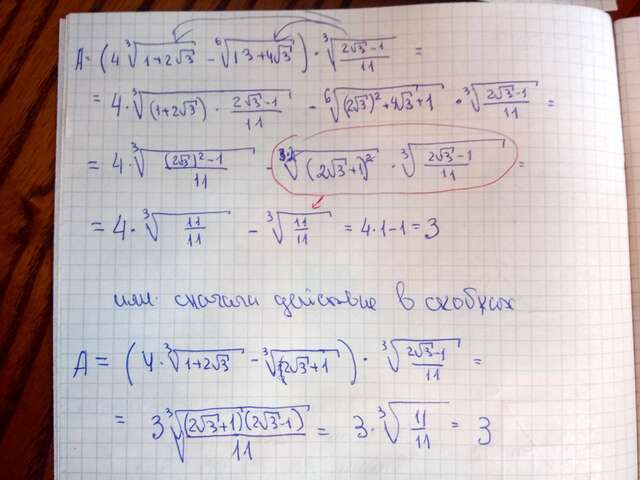 A = (4∛(1+2√3) − ⁶√(13+4√3)) · ∛((2√3−1)/11) =
= 4·∛((1+2√3)·(2√3−1)/11) − ⁶√((2√3)²+4√3+1) · ∛((2√3−1)/11) =
= 4·∛(((2√3)²−1)/11) − ³·²√((2√3+1)²) · ∛((2√3−1)/11) =
= 4·∛(11/11) − ∛(11/11) = 4·1−1=3
или: сначала действие в скобках
A = (4·∛(1+2√3) − ∛(2√3+1)) · ∛((2√3−1)/11) =
= 3∛((2√3+1)(2√3−1)/11) = 3·∛(11/11) = 3